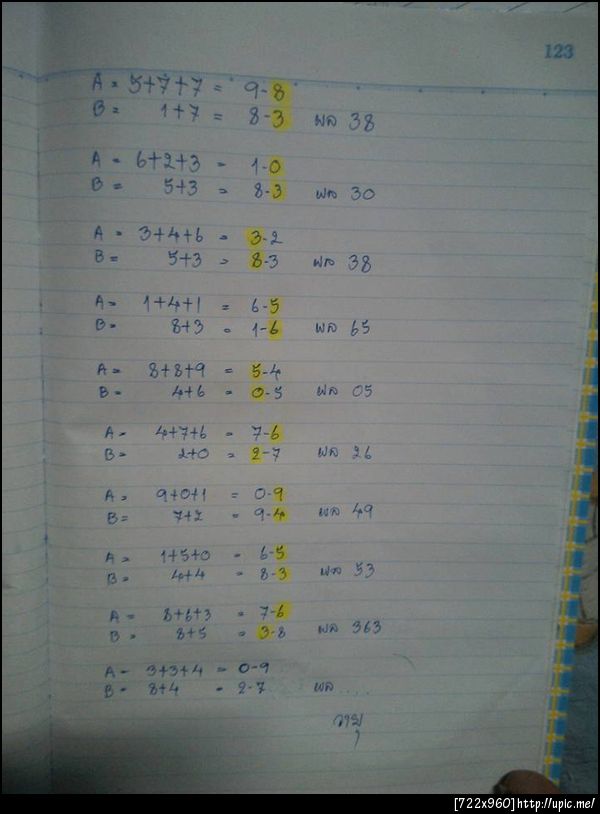 123
A = 5+7+7 = 9-8
B = 1+7 = 8-3 ผล 38
A = 6+2+3 = 1-0
B = 5+3 = 8-3 ผล 30
A = 3+4+6 = 3-2
B = 5+3 = 8-3 ผล 38
A = 1+4+1 = 6-5
B = 8+3 = 1-6 ผล 65
A = 8+8+9 = 5-4
B = 4+6 = 0-5 ผล 05
A = 4+7+6 = 7-6
B = 2+0 = 2-7 ผล 26
A = 9+0+1 = 0-9
B = 7+2 = 9-4 ผล 49
A = 1+5+0 = 6-5
B = 4+4 = 8-3 ผล 53
A = 8+6+3 = 7-6
B = 8+5 = 3-8 ผล 363
A - 3+3+4 = 0-9
B = 8+4 = 2-7 ผล ....
วายุ
[722x960]http://upic.me/